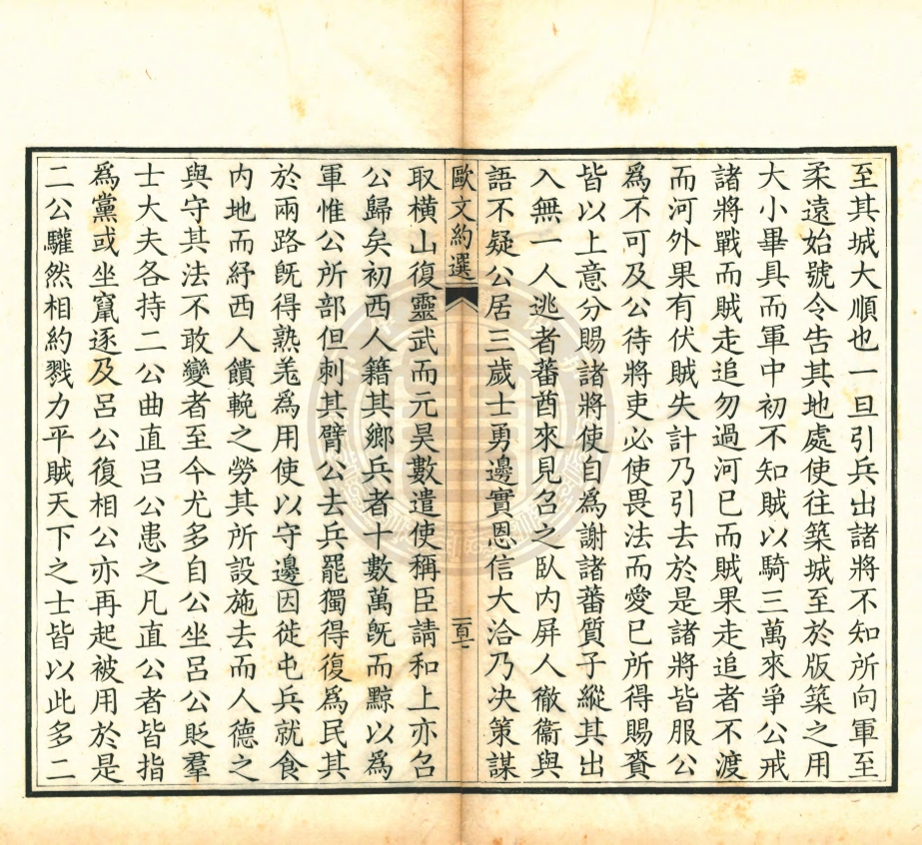 至其城大順也一旦引兵出諸將不知所向軍至
柔遠始號令告其地處使往築城至於版築之用
大小畢具而軍中初不知賊以騎三萬來爭公戒
諸將戰而賊走追勿過河已而賊果走追者不渡
而河外果有伏賊失計乃引去於是諸將皆服公
爲不可及公待將吏必使畏法而愛已所得賜賚
皆以上意分賜諸將使自爲謝諸蕃質子縱其出
入無一人逃者蕃酋來見召之臥内屏人徹衞與
語不疑公居三歲士勇邊實恩信大洽乃決策謀
歐文約選
一百七
取橫山復靈武而元昊數遣使稱臣請和上亦召
公歸矣初西人籍其鄉兵者十數萬旣而黥以爲
軍惟公所部但刺其臂公去兵罷獨得復爲民其
於兩路旣得熟羌爲用使以守邊因徙屯兵就食
内地而紓西人饋輓之勞其所設施去而人德之
與守其法不敢變者至今尤多自公坐呂公貶羣
士大夫各持二公曲直呂公患之凡直公者皆指
爲黨或坐竄逐及呂公復相公亦再起被用於是
二公驩然相約戮力平賊天下之士皆以此多二